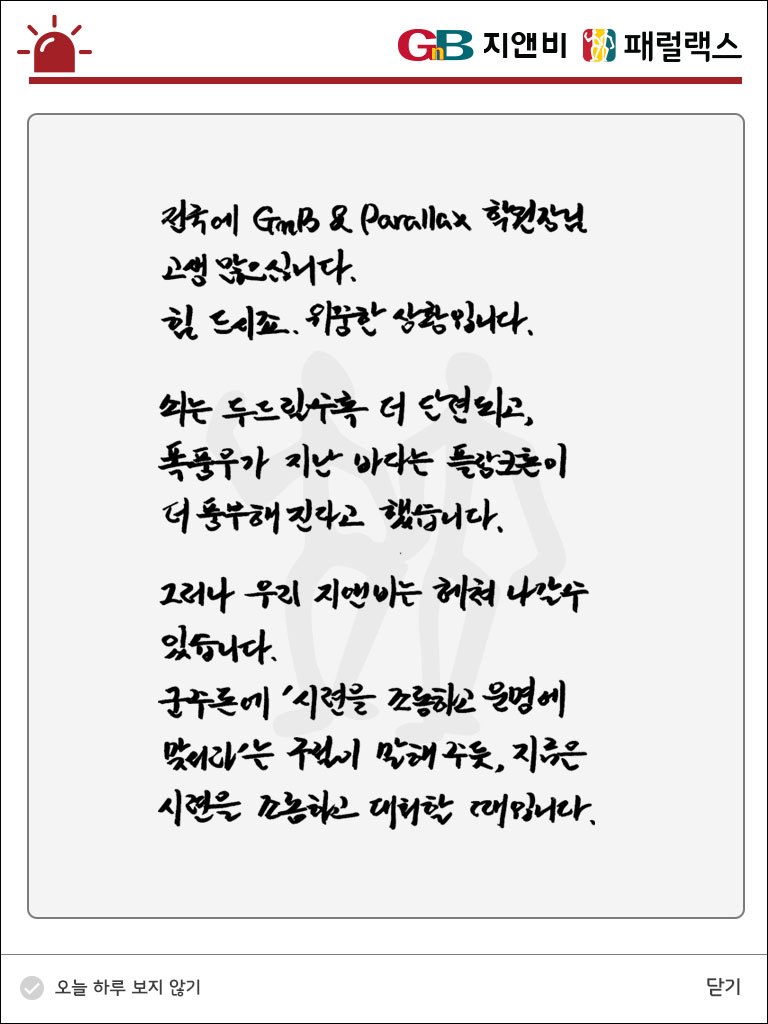 GnB 지앤비 패럴랙스
전국에 GnB & Parallax 학원장님
고생 많으십니다.
힘 드시죠.. 위중한 상황입니다.
쇠는 두드릴수록 더 단련되고,
폭풍우가 지난 바다는 플랑크톤이
더 풍부해진다고 했습니다.
그러나 우리 지앤비는 헤쳐 나갈수
있습니다.
군주론에 '시련을 조롱하고 운명에
맞서라'는 구절이 말해 주듯, 지금은
시련을 조롱하고 대처할 때입니다.
오늘 하루 보지 않기
닫기